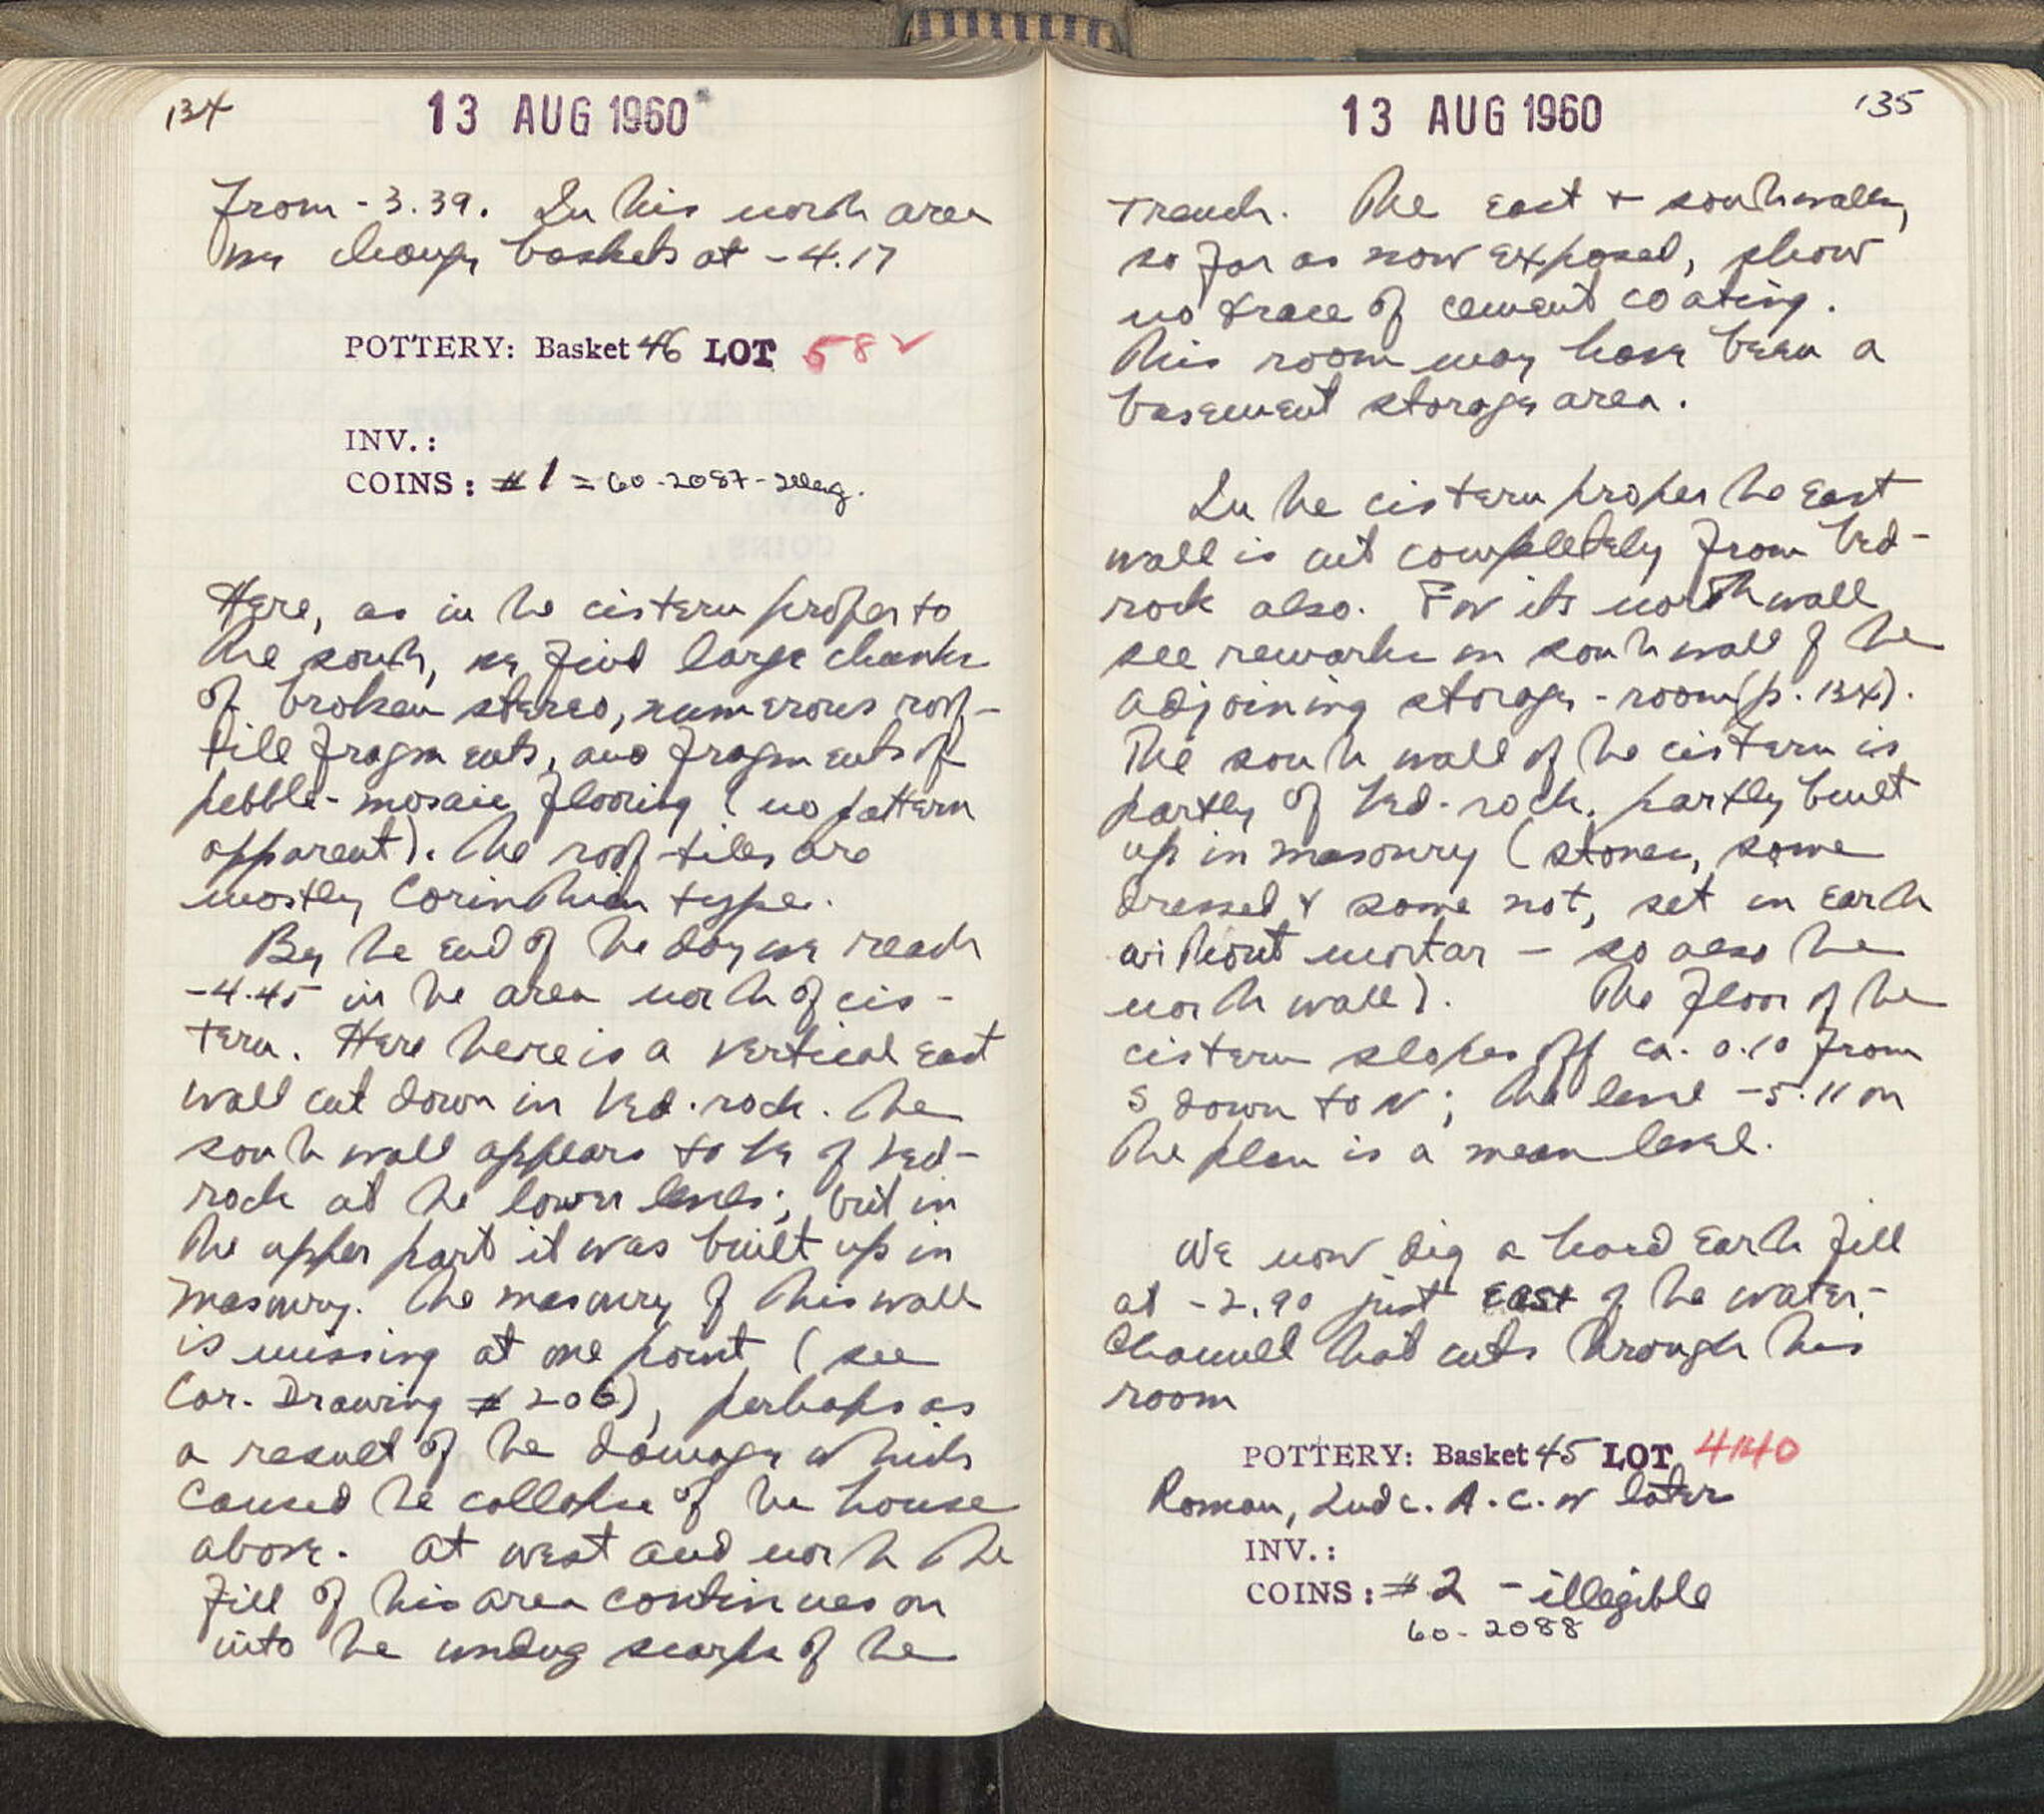 134
13 AUG 1960
from -3.39. In this north area
we change baskets at -4.17
POTTERY: Basket 46 LOT 582
INV.:
COINS: #1 = 60-2087-illeg.
Here, as in the cistern proper to
the south, we find large chunks
of broken stereo, numerous roof-
tile fragments, and fragments of
pebble-mosaic flooring (no pattern
apparent). The roof-tiles are
mostly Corinthian type.
By the end of the day we reach
-4.45 in the area north of cis-
tern. Here there is a vertical east
wall cut down in bed-rock. The
south wall appears to be of bed-
rock at the lower levels; but in
the upper part it was built up in
masonry. The masonry of this wall
is missing at one point (see
Cor. Drawing #206), perhaps as
a result of the damage which
caused the collapse of the house
above. At west and north the
fill of this area continues on
into the undug scarps of the
135
13 AUG 1960
trench. The east + south walls,
so far as now exposed, show
no trace of cement coating.
This room may have been a
basement storage area.
In the cistern proper the east
wall is cut completely from bed-
rock also. For its north wall
see remarks on south wall of the
adjoining storage-room (p. 134).
The south wall of the cistern is
partly of bed-rock, partly built
up in masonry (stones, some
dressed & some not, set in earth
without mortar - so also the
north wall). The floor of the
cistern slopes off ca. 0.10 from
S down to N; the level -5.11 on
the plan is a mean level.
We now dig a hard earth fill
at -2.90 just east of the water-
channel that cuts through this
room
POTTERY: Basket 45 LOT 4140
Roman, 2nd c. A.C. or later
INV.:
COINS: #2 - illegible
60-2088